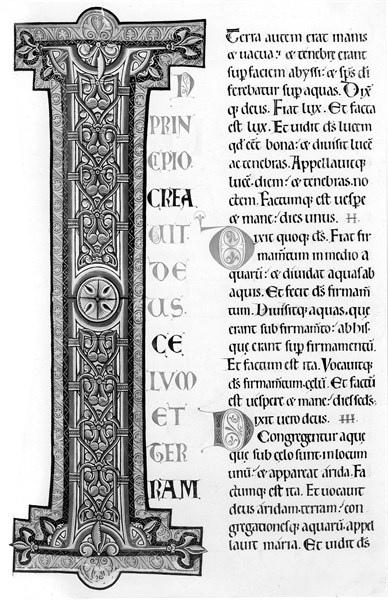 IN
PRIN
CIPIO
CREA
UIT
DE
US
CE
LUM
ET
TER
RAM
Terra autem erat inanis
& uacua: & tenebre erant
sup faciem abyssi: & sps dī
ferebatur sup aquas. Dix̄
q; deus. Fiat lux. Et facta
est lux. Et uidit ds lucem
qd eēt bona: & diuisit lucē
ac tenebras. Appellauitq;
lucē diem: & tenebras no
ctem. Factumq; est uespe
& mane: dies unus. II.
Dixit quoq; ds. Fiat fir
mamtum in medio a
quarū: & diuidat aquas ab
aquis. Et fecit ds firmam
tum. Diuisitq; aquas, que
erant sub firmamto: ab his
que erant sup firmamentū.
Et factum est ita. Vocauitq;
ds firmamtum celū. Et factū
est uespere & mane: dies seds.
Dixit uero deus. III.
Congregentur aque
que sub celo sunt in locum
unū: & appareat arida. Fa
ctumq; est ita. Et uocauit
deus aridam terram: con
gregationesq; aquarū, appel
lauit maria. Et uidit ds